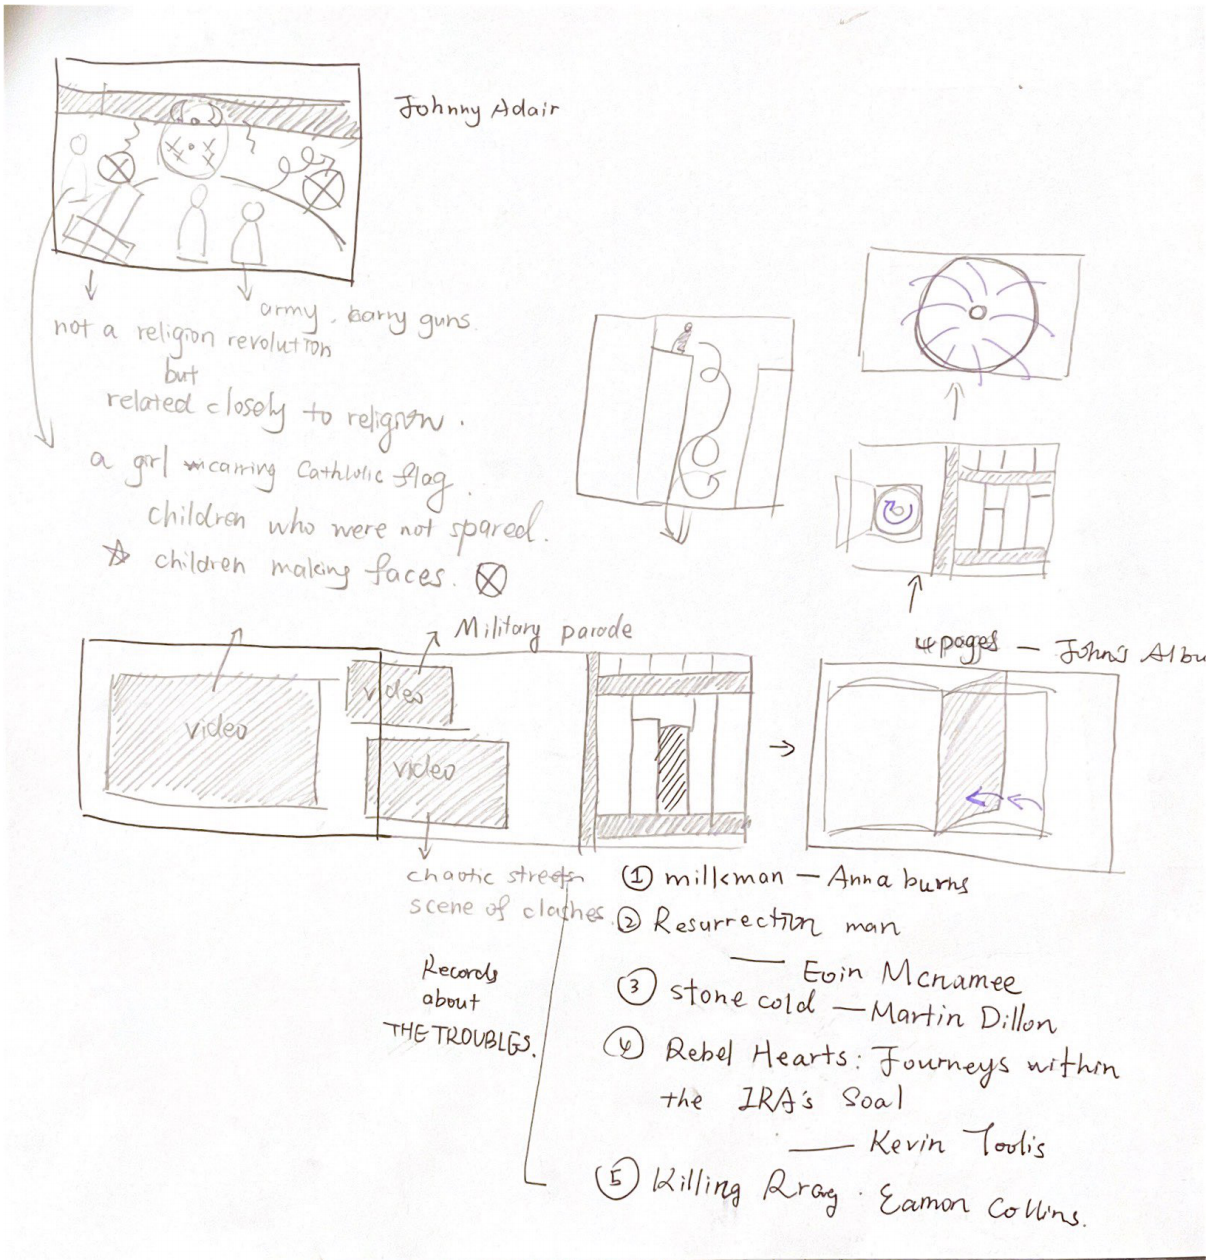 Johnny Adair
army. barry guns.
not a religion revolution
but
related closely to religion.
a girl wearring Cathlolic flag.
children who were not spared.
children making faces.
Military parade
4 pages — John's Albu
video
video
video
chaotic streets
scene of clashes.
Records
about
THE TROUBLES.
① milkman — Anna burns
② Resurrection man
— Eoin Mcnamee
③ stone cold — Martin Dillon
④ Rebel Hearts: Journeys within
the IRA's Soal
— Kevin Toolis
⑤ Killing Rrag. Eamon Collins.